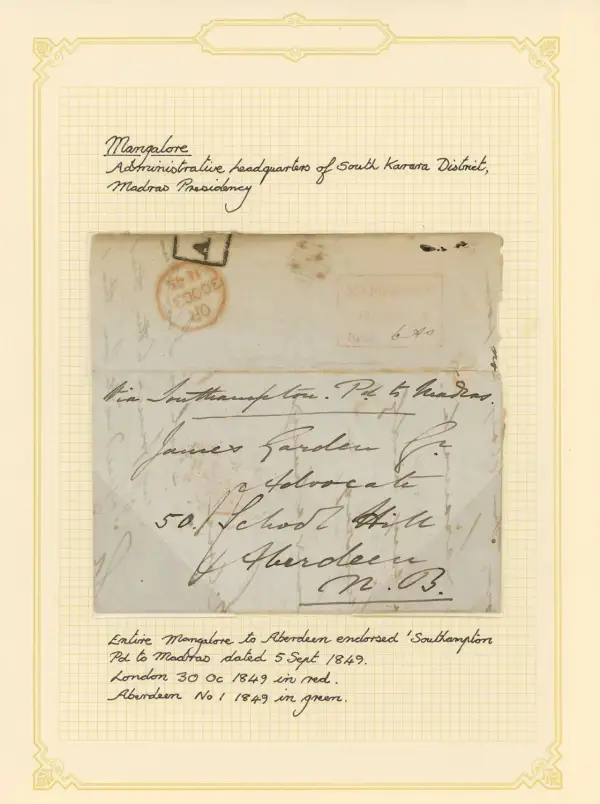 Mangalore
Administrative headquarters of South Kanara District,
Madras Presidency
A
6 As
Via Southampton. Pd to Madras.
James Garden Jr.
Advocate
50 School Hill
Aberdeen
N.B.
Entire Mangalore to Aberdeen endorsed 'Southampton
Pd to Madras dated 5 Sept 1849.
London 30 Oc 1849 in red.
Aberdeen No 1 1849 in green.